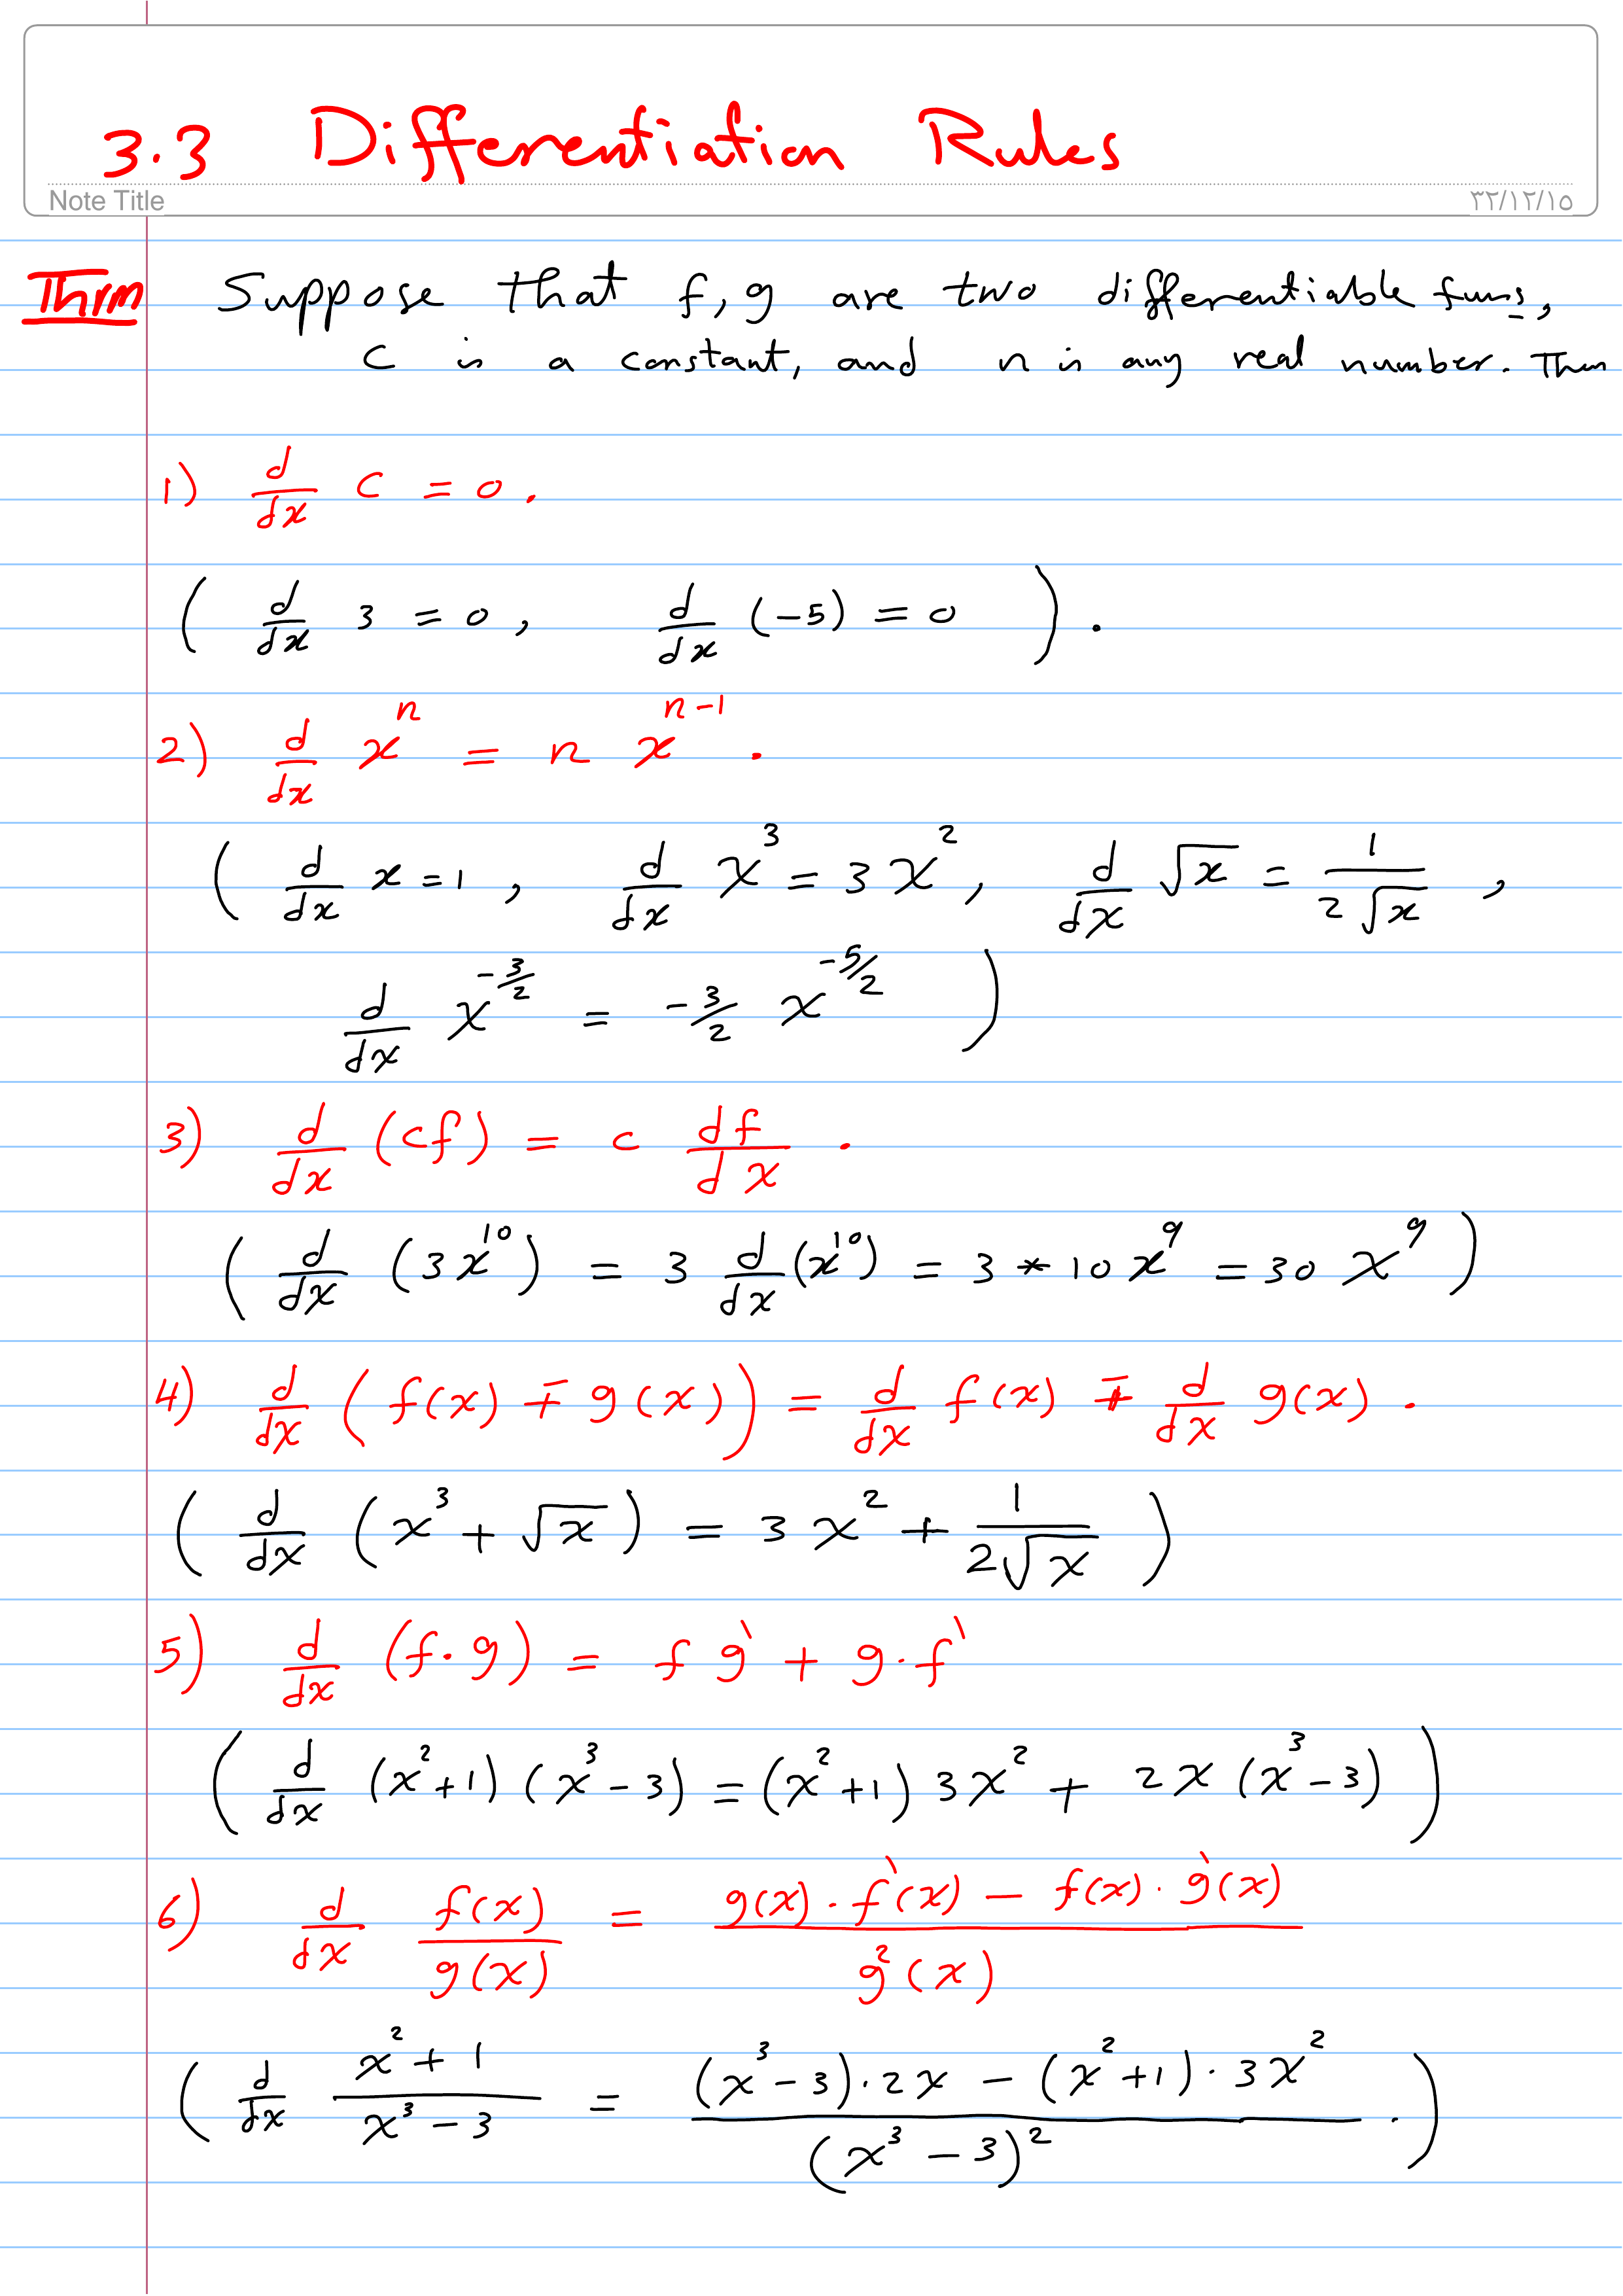 3.3 Differentiation Rules
Note Title
٣٢/١٢/١٥
Thrm Suppose that f, g are two differentiable funs,
c is a constant, and n is any real number. Then
1) d/dx c = 0.
( d/dx 3 = 0, d/dx (-5) = 0 ).
2) d/dx x^n = n x^(n-1).
( d/dx x = 1, d/dx x^3 = 3x^2, d/dx √x = 1/(2√x),
d/dx x^(-3/2) = -3/2 x^(-5/2) )
3) d/dx (cf) = c df/dx.
( d/dx (3x^10) = 3 d/dx (x^10) = 3 * 10 x^9 = 30 x^9 )
4) d/dx ( f(x) ∓ g(x) ) = d/dx f(x) ∓ d/dx g(x).
( d/dx ( x^3 + √x ) = 3x^2 + 1/(2√x) )
5) d/dx (f·g) = f g` + g·f`
( d/dx (x^2+1) (x^3-3) = (x^2+1) 3x^2 + 2x (x^3-3) )
6) d/dx f(x)/g(x) = (g(x)·f`(x) - f(x)·g`(x))/(g^2(x))
( d/dx (x^2+1)/(x^3-3) = ((x^3-3)·2x - (x^2+1)·3x^2)/((x^3-3)^2) . )